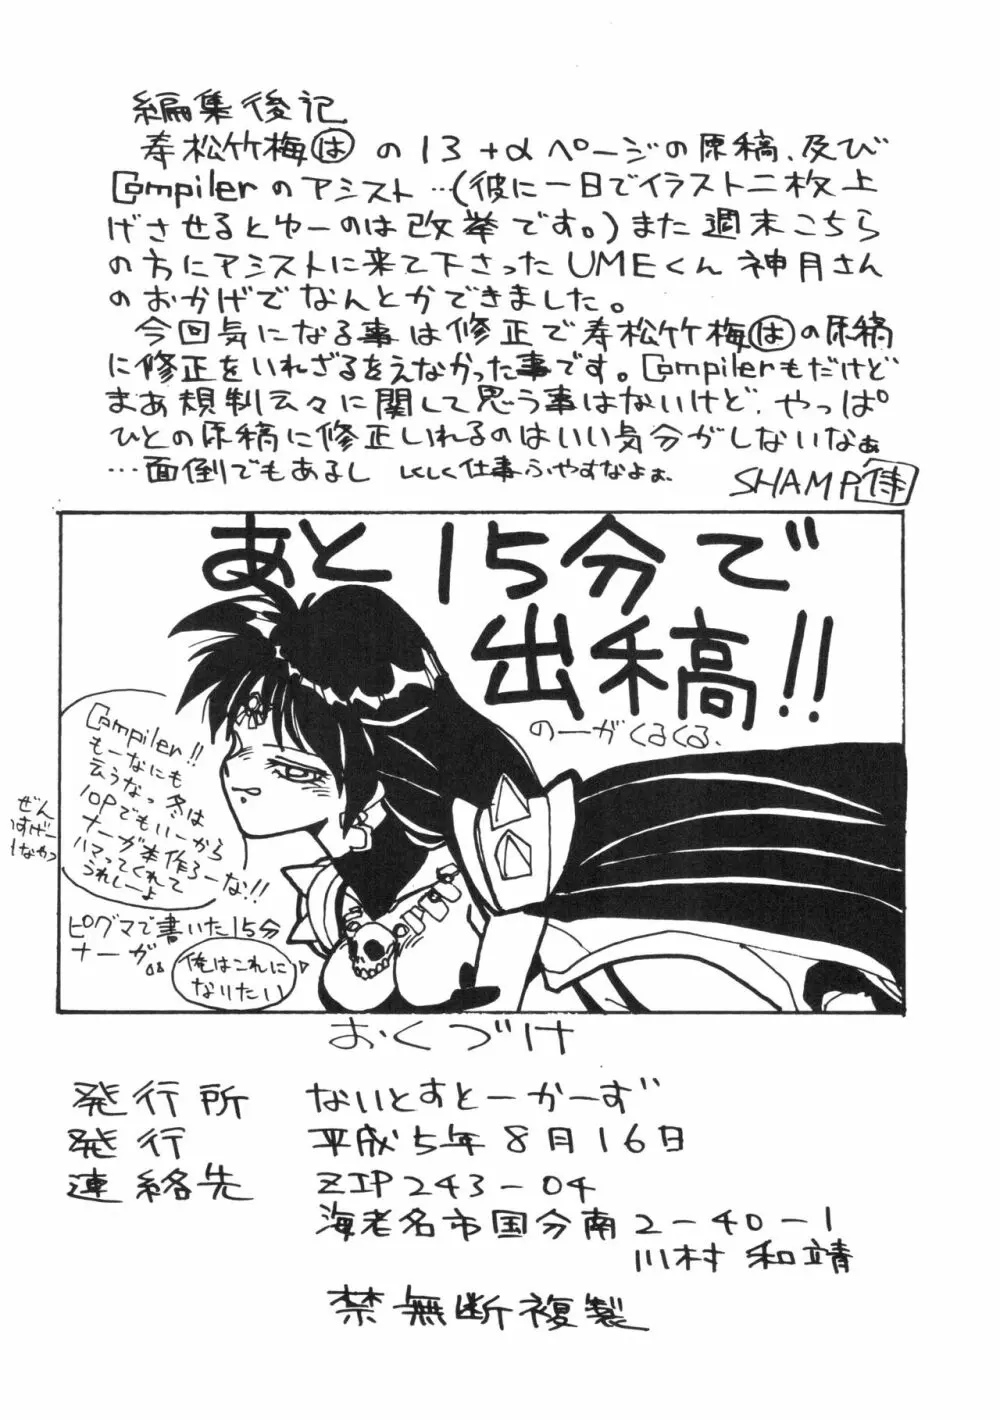 編集後記
寿松竹梅はの13+αページの原稿、及び
Compilerのアシスト…(彼に一日でイラスト二枚上
げさせるとゆーのは改挙です。)また週末こちら
の方にアシストに来て下さったUMEくん神月さん
のおかげでなんとかできました。
今回気になる事は修正で寿松竹梅はの原稿
に修正をいれざるをえなかった事です。Compilerもだけど
まあ規制云々に関して思う事はないけど、やっぱ
ひとの原稿に修正いれるのはいい気分がしないなぁ
…面倒でもあるし しくしく仕事ふやすなよぉ
SHAMP侍
あと15分で
出稿!!
のーがくるくる、
Compiler!!
もーなにも
云うなっ 冬は
10Pでもいーから
ナーガ本作ろーな!!
ハマってくれて
うれしーよ
ピグマで書いた15分
ナーガ
俺はこれに
なりたい
おくづけ
発行所 ないとすとーかーず
発行 平成5年8月16日
連絡先 ZIP243-04
海老名市国分南2-40-1
川村 和靖
禁無断複製